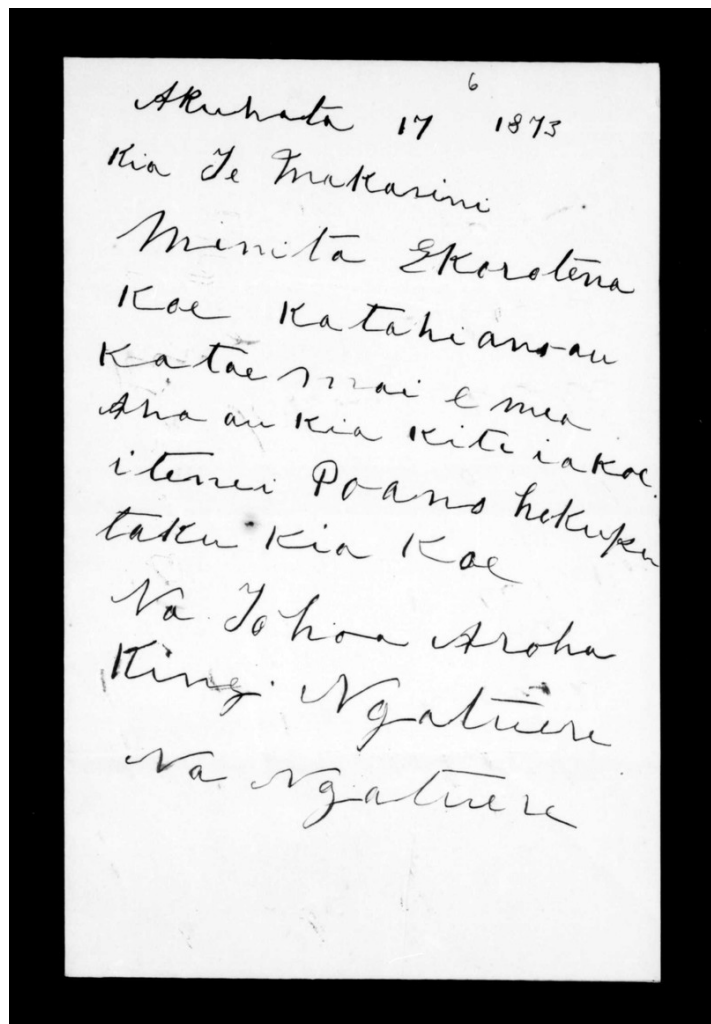 6
Akuhata 17 1873
Kia Te Makarini
Minita E Korotēna
Koe Katahi ano au
Ka tae mai e mea
Ana au kia kite i a koe
i tenei Po ano he kupu
taku kia Koe
Na To hoa Aroha
King. Ngatuere
Na Ngatuere